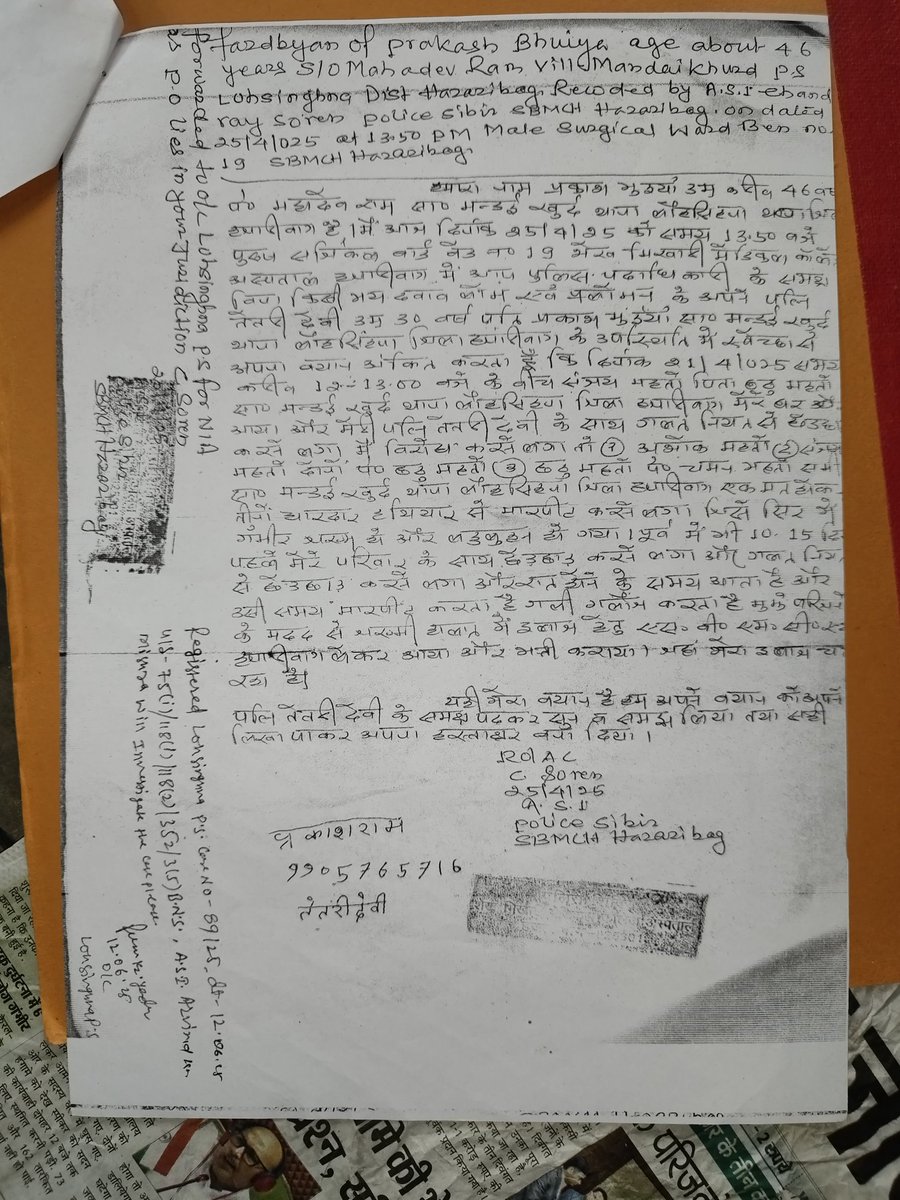 fardbyan of Prakash Bhuiya age about 46
years S/O Mahadev Ram Vill Mandaikhurd PS
Lohsinghna Dist Hazaribag. Recoded by A.S.I chand
ray Soren Police Sibir SBMCH Hazaribag. on dated
25/4/025 at 13:50 PM Male Surgical Ward Ben no
19 SBMCH Hazaribag.
हमारा नाम प्रकाश भुइयां उम्र करीब 46 वर्ष
पे० महादेव राम सा० मन्डई खुर्द थाना लौहसिंहना
हजारीबाग है। मैं आज दिनांक 25/4/25 को समय 13:50 बजे
पुरुष सर्जिकल वार्ड बेड न० 19 शेख भिखारी मेडिकल कॉलेज
अस्पताल हजारीबाग में आप पुलिस पदाधिकारी के समक्ष
बिना किसी भय दवाव लोभ एवं प्रलोभन के अपने पत्नि
तेतरी देवी उम्र 30 वर्ष पति प्रकाश भुइयां सा० मन्डई खुर्द
थाना लौहसिंहना जिला हजारीबाग के उपस्थिति में स्वेच्छा से
अपना बयान अंकित करता हूँ कि दिनांक 21/4/025 समय
करीब 12-13:00 बजे के बीच संजय महतो पिता छठु महतो
सा० मन्डई खुर्द थाना लौहसिंहना जिला हजारीबाग मेरे घर
आया और मेरी पत्नि तेतरी देवी के साथ गलत नियत से
करने लगा मैं विरोध करने लगा तो (1) अशोक महतो (2) संजय
महतो दोनों पे० छठु महतो (3) छठु महतो पे० चमन महतो सभी
सा० मन्डई खुर्द थाना लौहसिंहना जिला हजारीबाग एक मत होकर
तीनों धारदार हथियार से मारपीट करने लगा। जिसे सिर में
गंभीर जख्म हो और लहुलुहान हो गया। पूर्व में भी 10-15 दिन
पहले मेरे परिवार के साथ छेड़छाड़ करने लगा और गलत नियत
से छेड़छाड़ करने लगा और रात होने के समय आता है और
उसी समय मारपीट करता है गली गलौज करता है मुझे परिजनों
के मदद से जख्मी हालत में इलाज हेतु एस० बी० एम० सी० एच
हजारीबाग लेकर आया और भर्ती कराया। जहां मेरा इलाज चल
रहा है।
यही मेरा बयान है हम अपने बयान को अपने
पत्नि तेतरी देवी के समक्ष पढकर सुन व समझ लिया तथा सही
लिखा पाकर अपना हस्ताक्षर बना दिया।
RO/AC
C. Soren
25/4/25
A.S.I
Police Sibir
SBMCH Hazaribag
प्रकाश राम
9905765716
तेतरी देवी
forwarded to O/C Lohsinghna P/S for NIA
as P.O lies in your Jusidiction
C Soren
Police Sibir
SBMCH Hazaribag
Registered Lohsinghna P.S. Case NO- 89/25 dt- 12.06.25
U/S- 75(i)/118(1)/118(2)/352/3(5) B.N.S., A.S.I Arvind
mishra will Investigate the case please.
12.06.25
O/C
Lohsinghna P.S